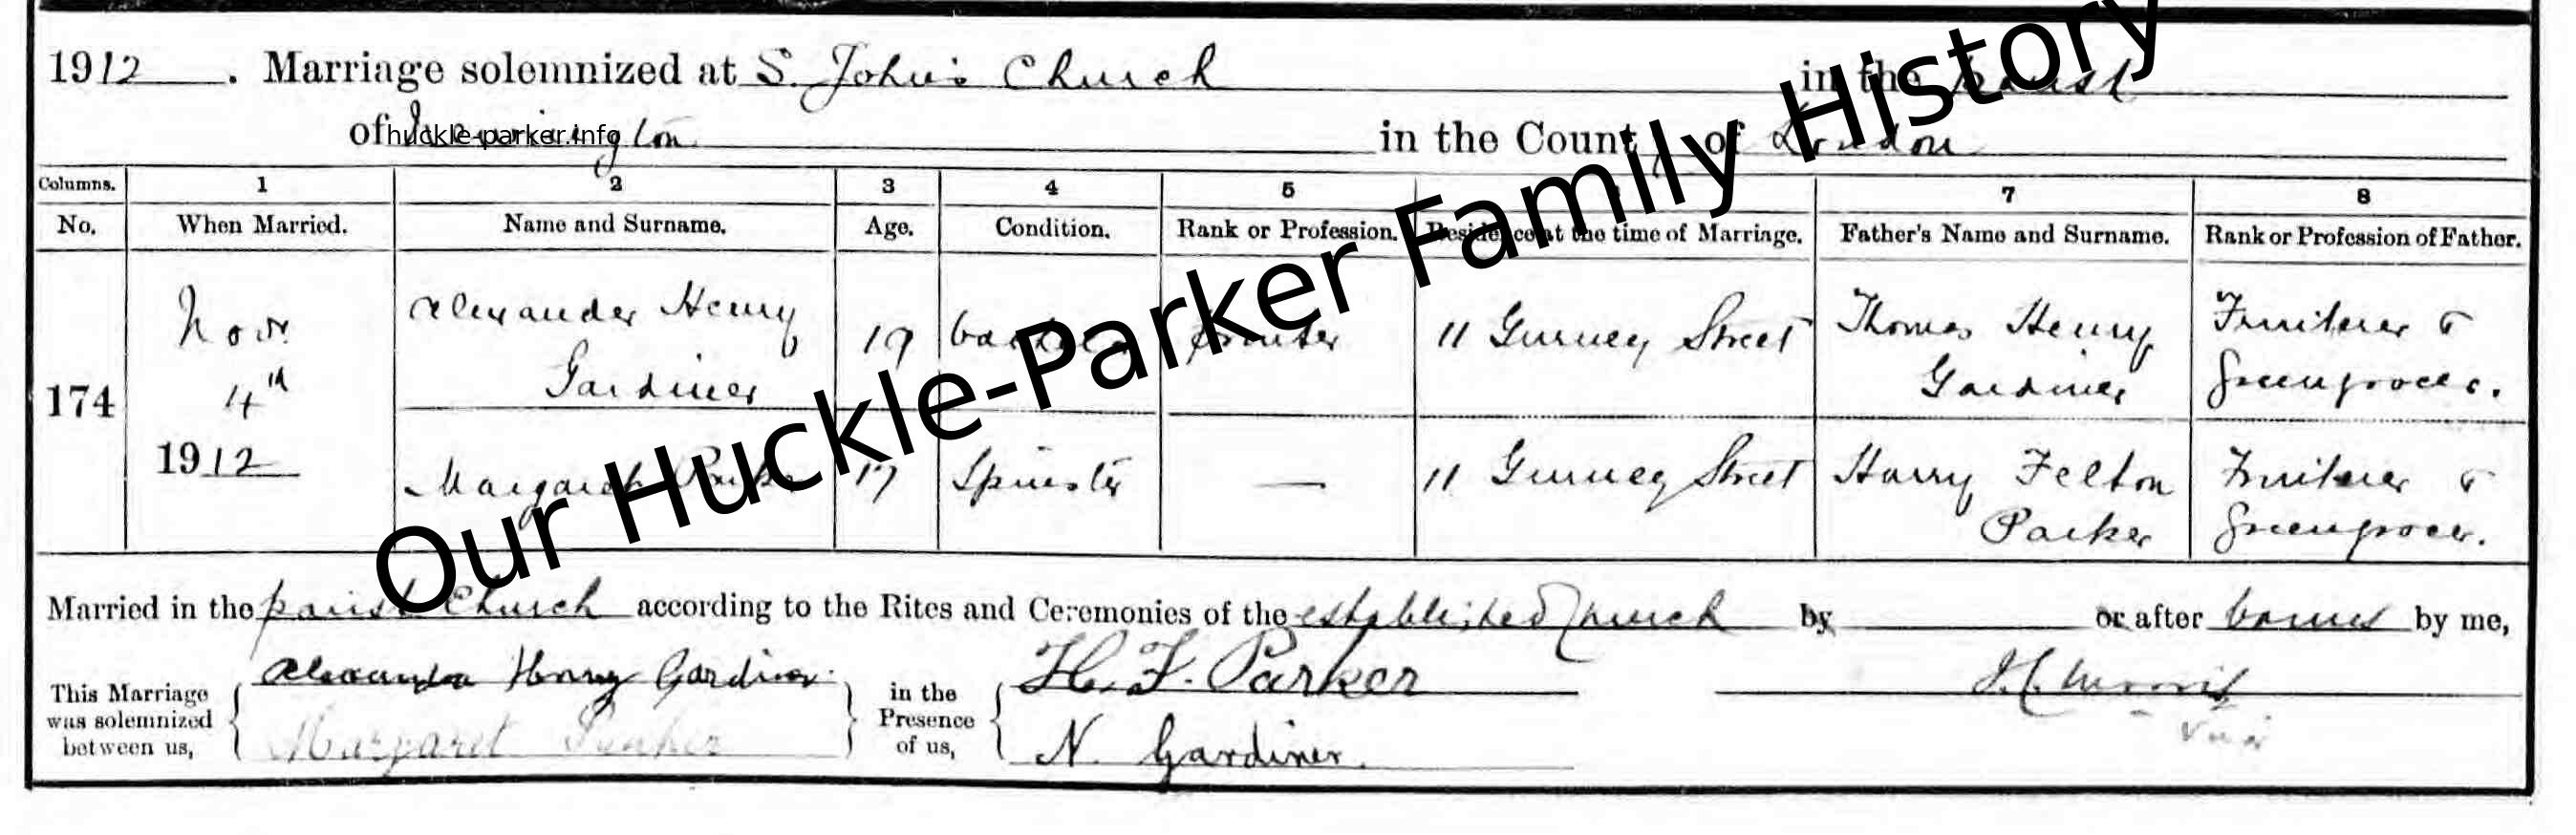 1912. Marriage solemnized at S. John's Church in the parish
of huckle-parker.info in the County of London
Columns. 1 2 3 4 5 7 8
No. When Married. Name and Surname. Age. Condition. Rank or Profession. Residence at the time of Marriage. Father's Name and Surname. Rank or Profession of Father.
174 Nov. 4th 1912
Alexander Henry Gardiner 19 bachelor Printer 11 Gurney Street Thomas Henry Gardiner Fruiterer & Greengrocer.
Margaret Parker 17 Spinster — 11 Gurney Street Harry Felton Parker Fruiterer & Greengrocer.
Our Huckle-Parker Family History
Married in the parish Church according to the Rites and Ceremonies of the established Church by or after banns by me,
This Marriage was solemnized between us, Alexander Henry Gardiner. Margaret Parker
in the Presence of us, H. F. Parker N. Gardiner.
Vicar